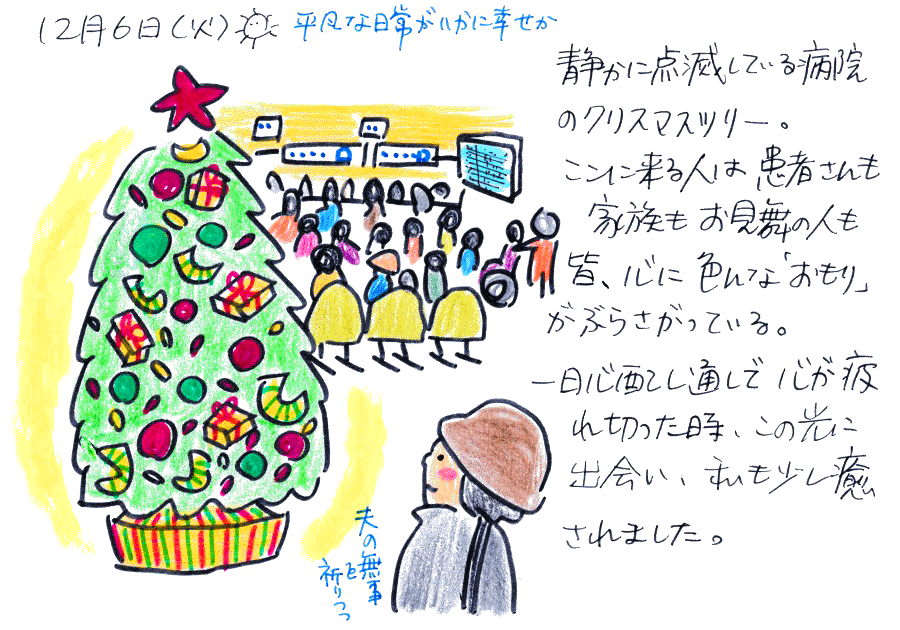 12月6日(火) 平凡な日常がいかに幸せか
静かに点滅している病院
のクリスマスツリー。
ここに来る人は患者さんも
家族もお見舞の人も
皆、心に色んな「おもり」
がぶらさがっている。
一日心配し通しで心が疲
れ切った時、この光に
出会い、私も少し癒
されました。
夫の無事
を
祈りつつ